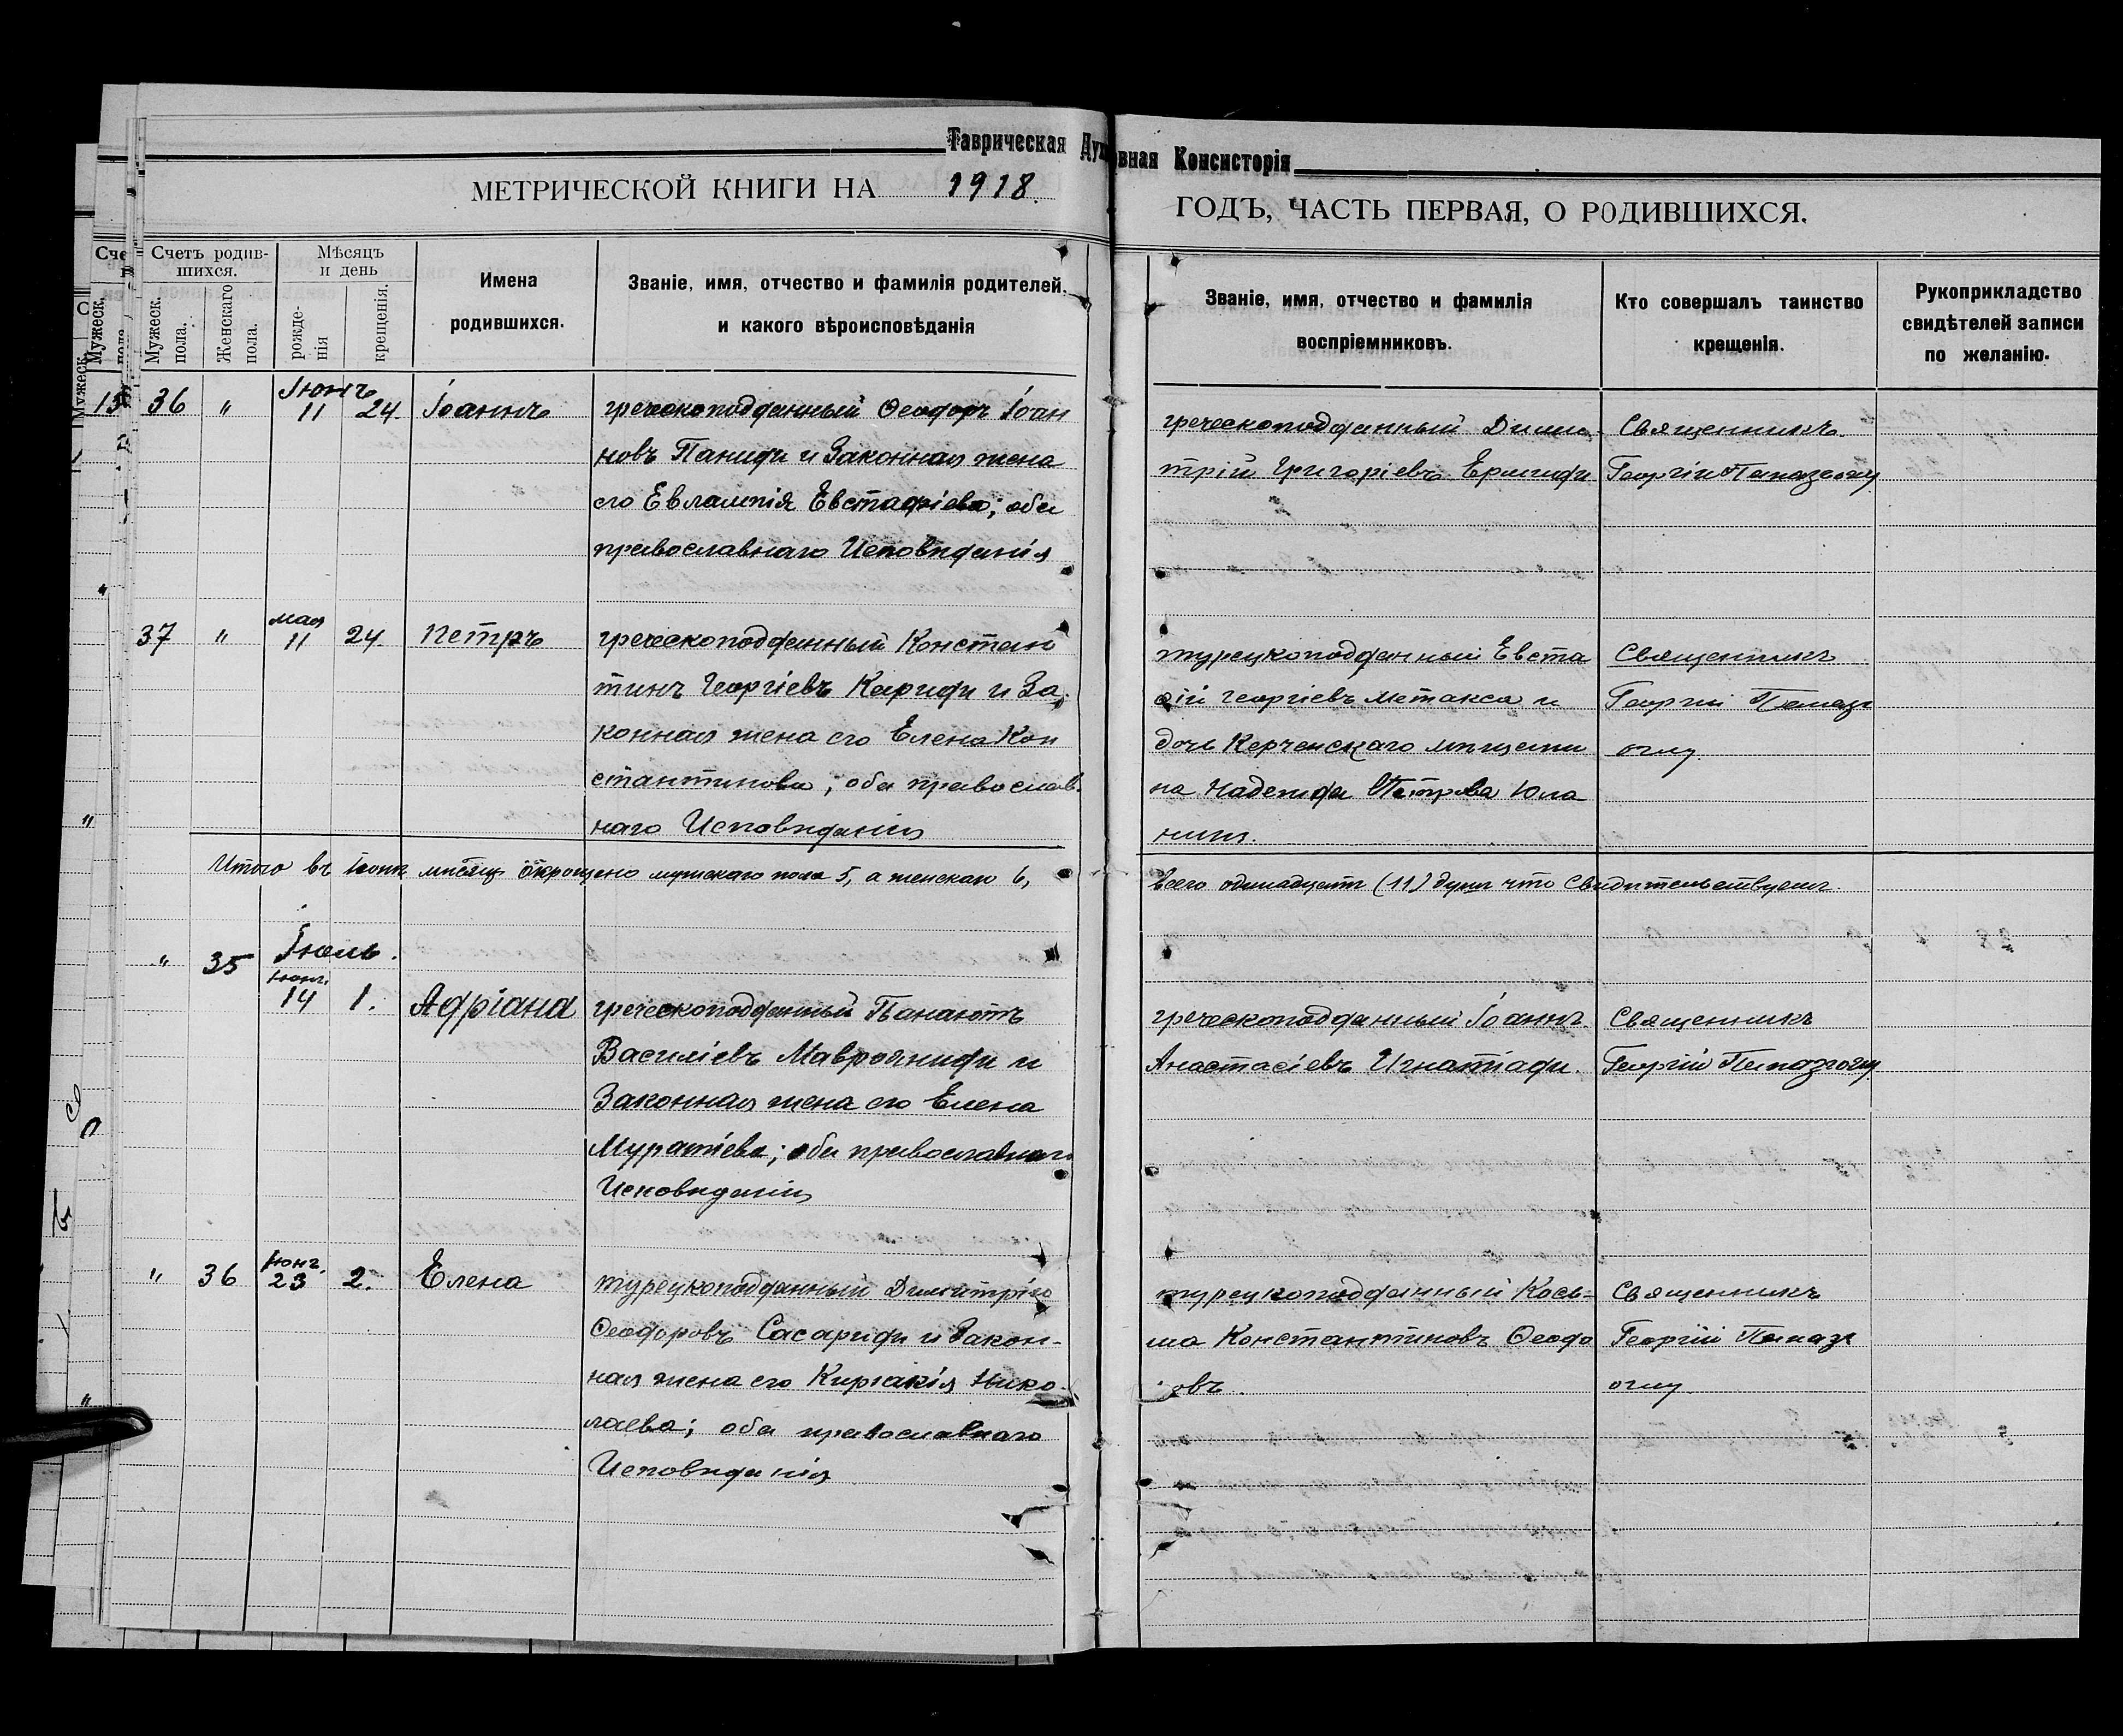 Таврическая Духовная Консисторія
МЕТРИЧЕСКОЙ КНИГИ НА 1918 ГОДЪ, ЧАСТЬ ПЕРВАЯ, О РОДИВШИХСЯ.
Счетъ родив-
шихся.
Мужеск.
пола.
Женскаго
пола.
Мѣсяцъ
и день
рожде-
нія
крещенія.
Имена
родившихся.
Званіе, имя, отчество и фамилія родителей,
и какого вѣроисповѣданія
Званіе, имя, отчество и фамилія
воспріемниковъ.
Кто совершалъ таинство
крещенія.
Рукоприкладство
свидѣтелей записи
по желанію.
36 " Іюнь 11 24. Іоаннъ
греческоподданный Ѳеодоръ Іоан
новъ Паниди и Законная жена
его Евлампія Евстафіева; оба
православнаго Исповѣданія
греческоподданный Дими-
трій Григоріевъ Ермиди
Священникъ
Георгій Папазоглу
37 " мая 11 24. Петръ
греческоподданный Констан
тинъ Георгіевъ Кариди и За-
конная жена его Елена Кон
стантинова; оба православ-
наго Исповѣданія
турецкоподданный Евста
ѳій Георгіевъ Метакса и
дочь Керченскаго мѣщани
на Надежда Петрова Юла
Священникъ
Георгій Папаз
оглу
Итого въ Іюнѣ мѣсяцѣ окрещено мужскаго пола 5, а женскаго 6,
всего одинадцать (11) душъ что Свидѣтельствуемъ.
Іюль.
" 35 Іюнь 14 1. Адріана
греческоподданный Панаіотъ
Василіевъ Мавроиниди и
Законная жена его Елена
Муратіева; оба православнаго
Исповѣданія
греческоподданный Іоаннъ
Анастасіевъ Игнатіади.
Священникъ
Георгій Папазоглу
" 36 Іюнь. 23 2. Елена
турецкоподданный Димитрій
Ѳеодоровъ Сасариди и Закон-
ная жена его Киріакія Нико-
лаева; оба православнаго
Исповѣданія
турецкоподданный Козь-
ма Константиновъ Ѳеодо
овъ
Священникъ
Георгій Папаз
оглу